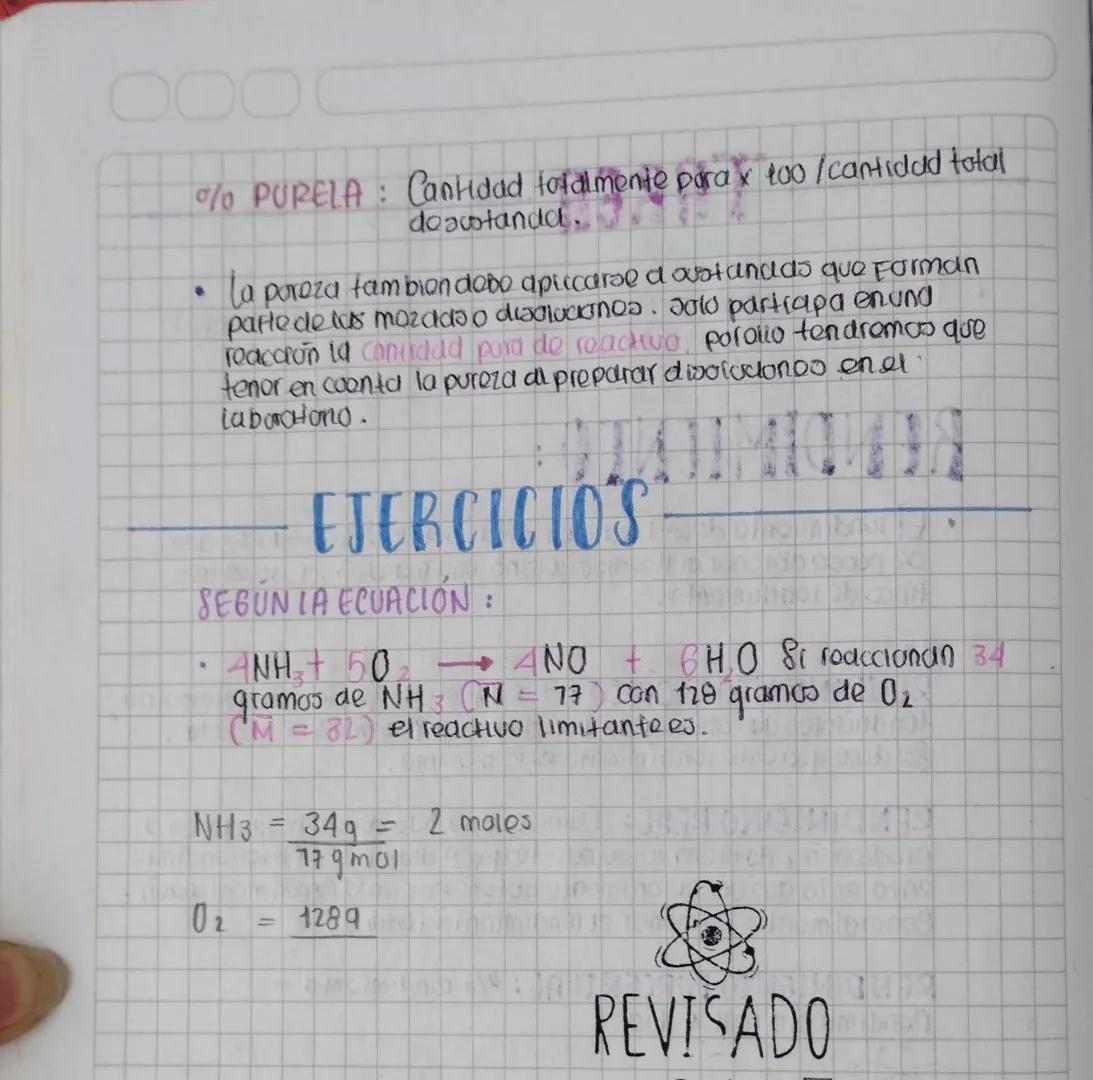 % PUREZA : Cantidad totalmente pura x 100 / cantidad total
de sustancia.
• La pureza tambien debe aplicarse a sustancias que Forman
parte de las mezclas o disoluciones. Solo participa en una
reacción la cantidad pura de reactivo, por ello tendremos que
tener en cuenta la pureza al preparar disoluciones en el
laboratorio.
RENDIMIENTO :
EJERCICIOS
SEGÚN LA ECUACIÓN :
• 4NH3 + 5O2 → 4NO + 6H2O Si reaccionan 34
gramos de NH3 (N = 17) con 128 gramos de O2
(M = 32) el reactivo limitante es.
NH3 = 34g = 2 moles
17 gmol
O2 = 128g
REVISADO